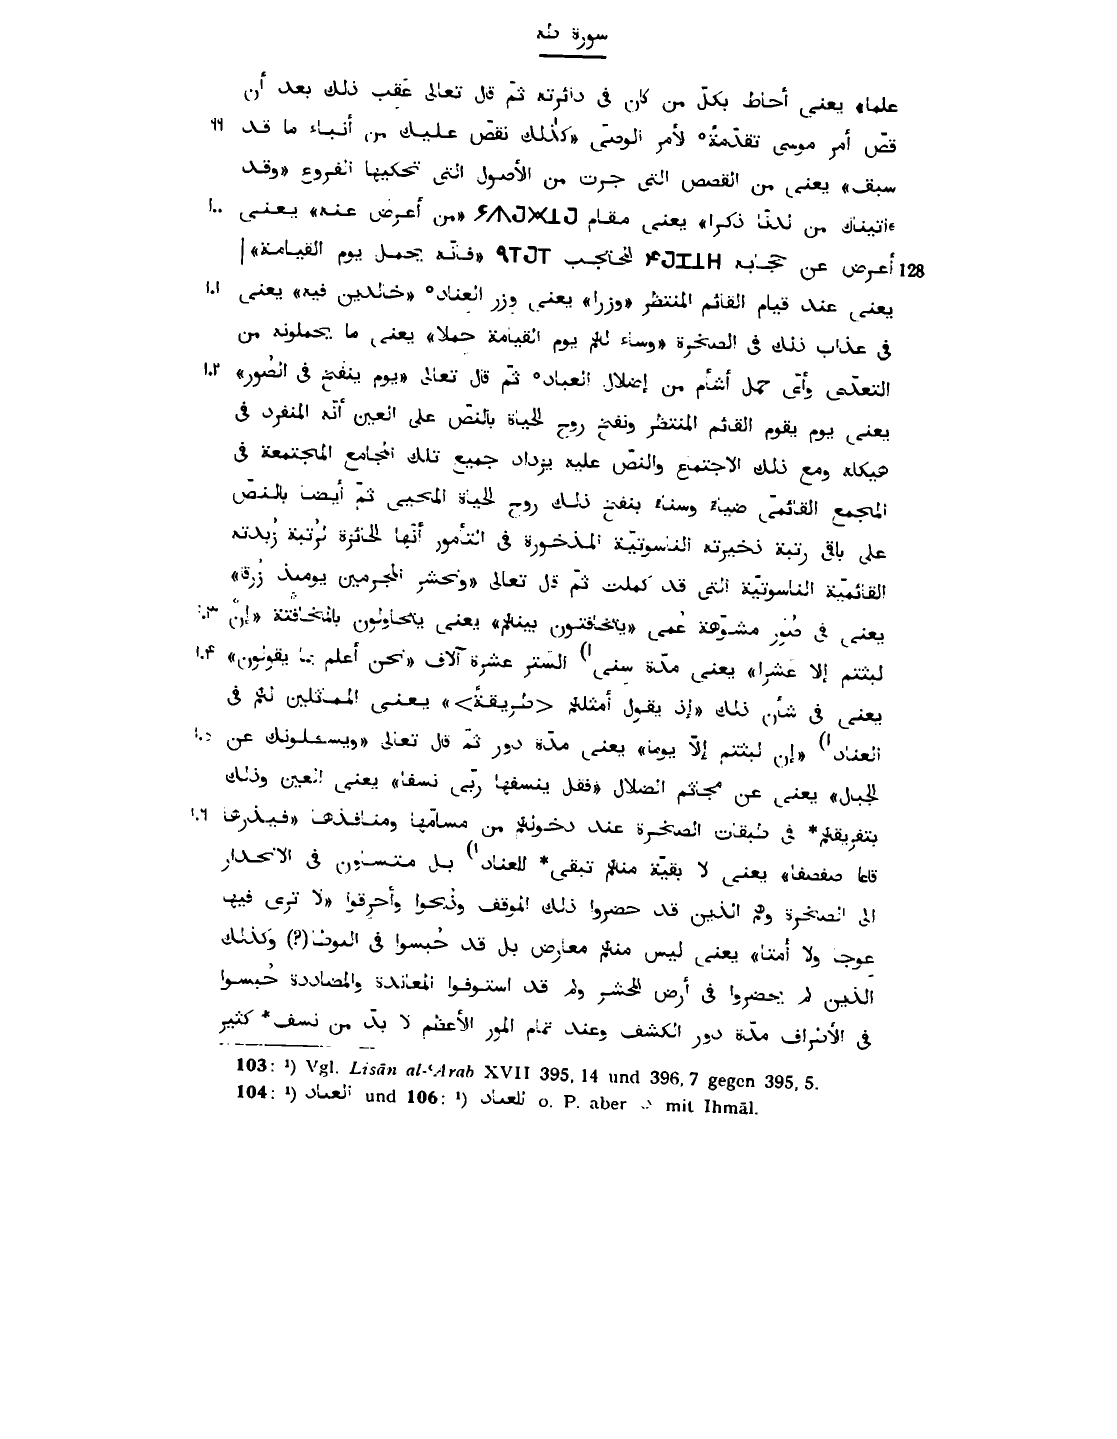 سورة طه
علما» يعنى أحاط بكلّ من كان فى دائرته ثمّ قال تعالى عَقِب ذلك بعد أن
قصّ أمر موسى تقدّمةً° لأمر الوصىّ «كذٰلك نقصّ عليك من أنباء ما قد ٩٩
سبق» يعنى من القصص التى جرت من الأصول التى تحكيها الفروع «وقد
ءاتيناك من لدنّا ذكرا» يعنى مقام «من أعرض عنه» يعنى ١٠٠
128 أعرض عن حجابه المحتجب «فإنّه يحمل يوم القيامة» |
يعنى عند قيام القائم المنتظر «وزرا» يعنى وزر العناد° «خالدين فيه» يعنى ١٠١
فى عذاب ذلك فى الصخرة «وساء لهم يوم القيامة حملا» يعنى ما يحملونه من
التعدّى وأىّ حمل أشأم من إضلال العباد° ثمّ قال تعالى «يوم ينفخ فى الصُور» ١٠٢
يعنى يوم يقوم القائم المنتظر ونفخ روح الحياة بالنصّ على العين أنّه المنفرد فى
هيكله ومع ذلك الاجتماع والنصّ عليه يزداد جميع تلك المجامع المجتمعة فى
المجمع القائمىّ ضياء وسناء بنفخ ذلك روح الحياة المحيى ثمّ أيضا بالنصّ
على باقى رتبة ذخيرته الناسوتيّة المذخورة فى التأمور أنّها الحائزة لرُتبة زُبدته
القائميّة الناسوتيّة التى قد كملت ثمّ قال تعالى «ونحشر المجرمين يومئذ زُرقا»
يعنى فى صُوَر مشوّهة عُمى «يتخافتون بينهم» يعنى يتحاولون بالمخافتة «إنْ ١٠٣
لبثتم إلا عَشرا» يعنى مدّة سنى¹) الستر عشرة آلاف «نحن أعلم بما يقولون» ١٠۴
يعنى فى شأن ذلك «إذ يقول أمثلهم <طريقةً>» يعنى الممثلين لهم فى
العناد¹) «إن لبثتم إلّا يوما» يعنى مدّة دور ثمّ قال تعالى «ويسءلونك عن ١٠٥
الجبال» يعنى عن مجاثم الضلال «فقل ينسفها ربّى نسفا» يعنى العين وذلك
بتفريقهم* فى طبقات الصخرة عند دخولهم من مسامّها ومنافذها «فيذرها ١٠٦
قاعا صفصفا» يعنى لا بقيّة منهم تبقى* للعناد¹) بل متساوون فى الانحدار
الى الصخرة وهم الذين قد حضروا ذلك الموقف وذُبحوا وأُحرقوا «لا ترى فيها
عوجا ولا أمتا» يعنى ليس منهم معارض بل قد حُبسوا فى الموت(؟) وكذلك
الذين لم يحضروا فى أرض المحشر ولم قد استوفوا المعاندة والمضاددة حُبسوا
فى الأشراف مدّة دور الكشف وعند تمام المور الأعظم لا بدّ من نسف* كثير
103: ¹) Vgl. Lisān al-ʿArab XVII 395, 14 und 396, 7 gegen 395, 5.
104: ¹) العماد und 106: ¹) للعماد o. P. aber mit Ihmāl.